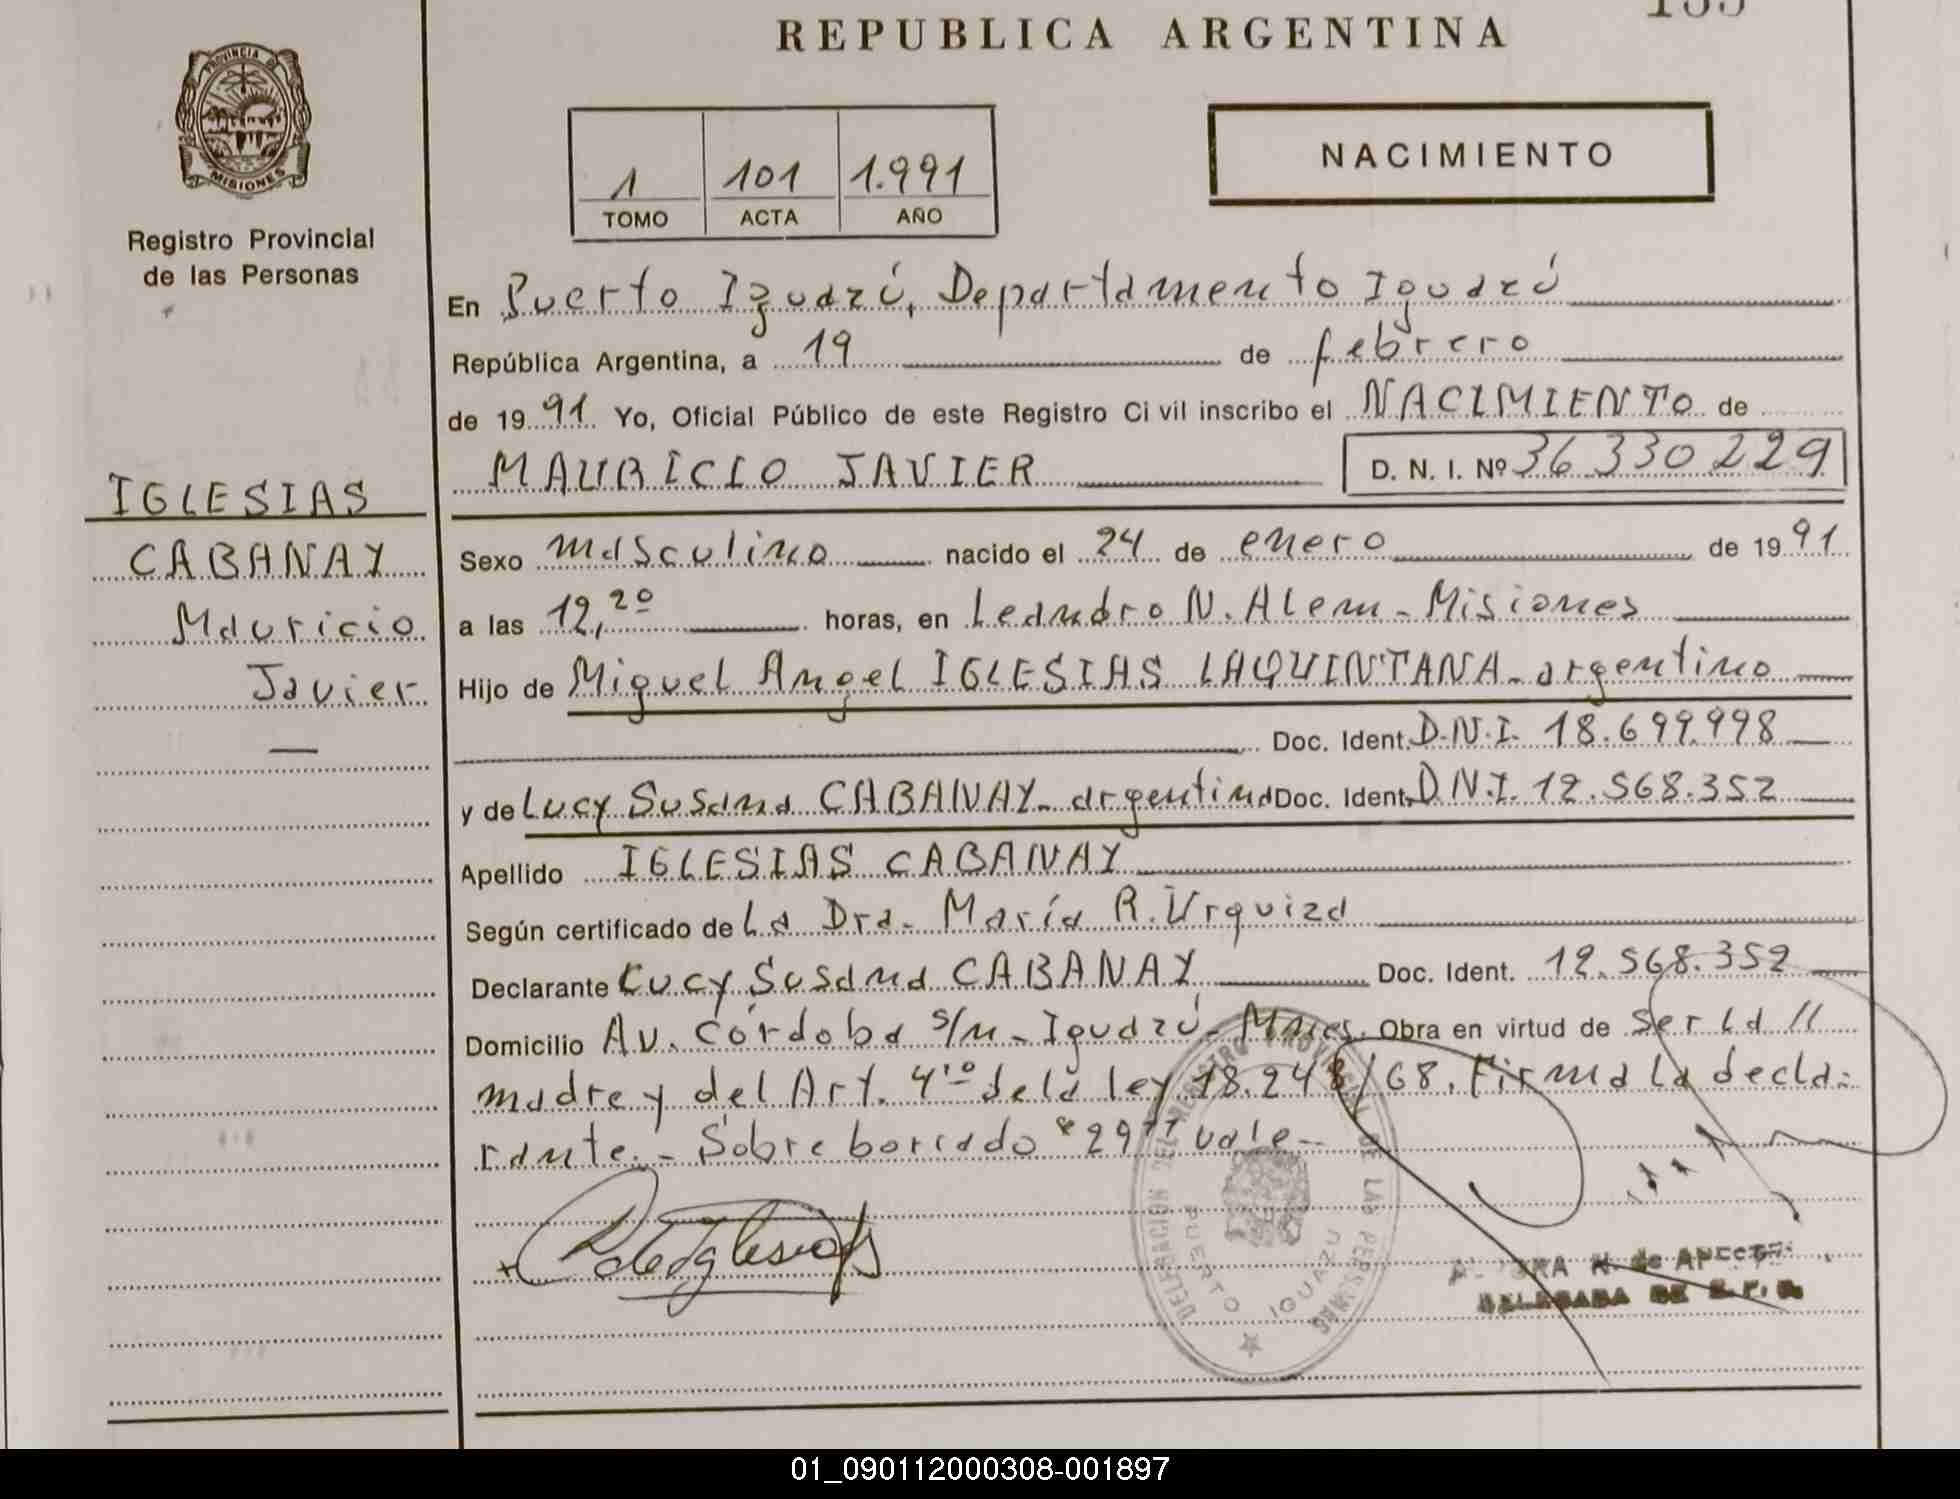 REPUBLICA ARGENTINA
PROVINCIA DE
MISIONES
Registro Provincial
de las Personas
1 101 1.991
TOMO ACTA AÑO
NACIMIENTO
En Puerto Iguazú, Departamento Iguazú
República Argentina, a 19 de febrero
de 1991 Yo, Oficial Público de este Registro Civil inscribo el NACIMIENTO de
MAURICIO JAVIER D. N. I. Nº 36 330 229
IGLESIAS
CABANAY
Mauricio
Javier
Sexo masculino nacido el 24 de enero de 1991
a las 12,20 horas, en Leandro N. Alem - Misiones
Hijo de Miguel Angel IGLESIAS LAQUINTANA - argentino
Doc. Ident. D.N.I. 18.699.998
y de Lucy Susana CABANAY - argentina Doc. Ident. D.N.I. 12.568.352
Apellido IGLESIAS CABANAY
Según certificado de La Dra. María R. Urquiza
Declarante Lucy Susana CABANAY Doc. Ident. 12.568.352
Domicilio Av. Córdoba s/n - Iguazú - Mnes. Obra en virtud de ser la //
madre y del Art. 4to de la ley 18.248/68. Firma la decla-
rante. - Sobre borrado "29" vale -
DELEGACION DEL REGISTRO PROVINCIAL DE LAS PERSONAS
PUERTO IGUAZU
DELEGADA DE
01_090112000308-001897